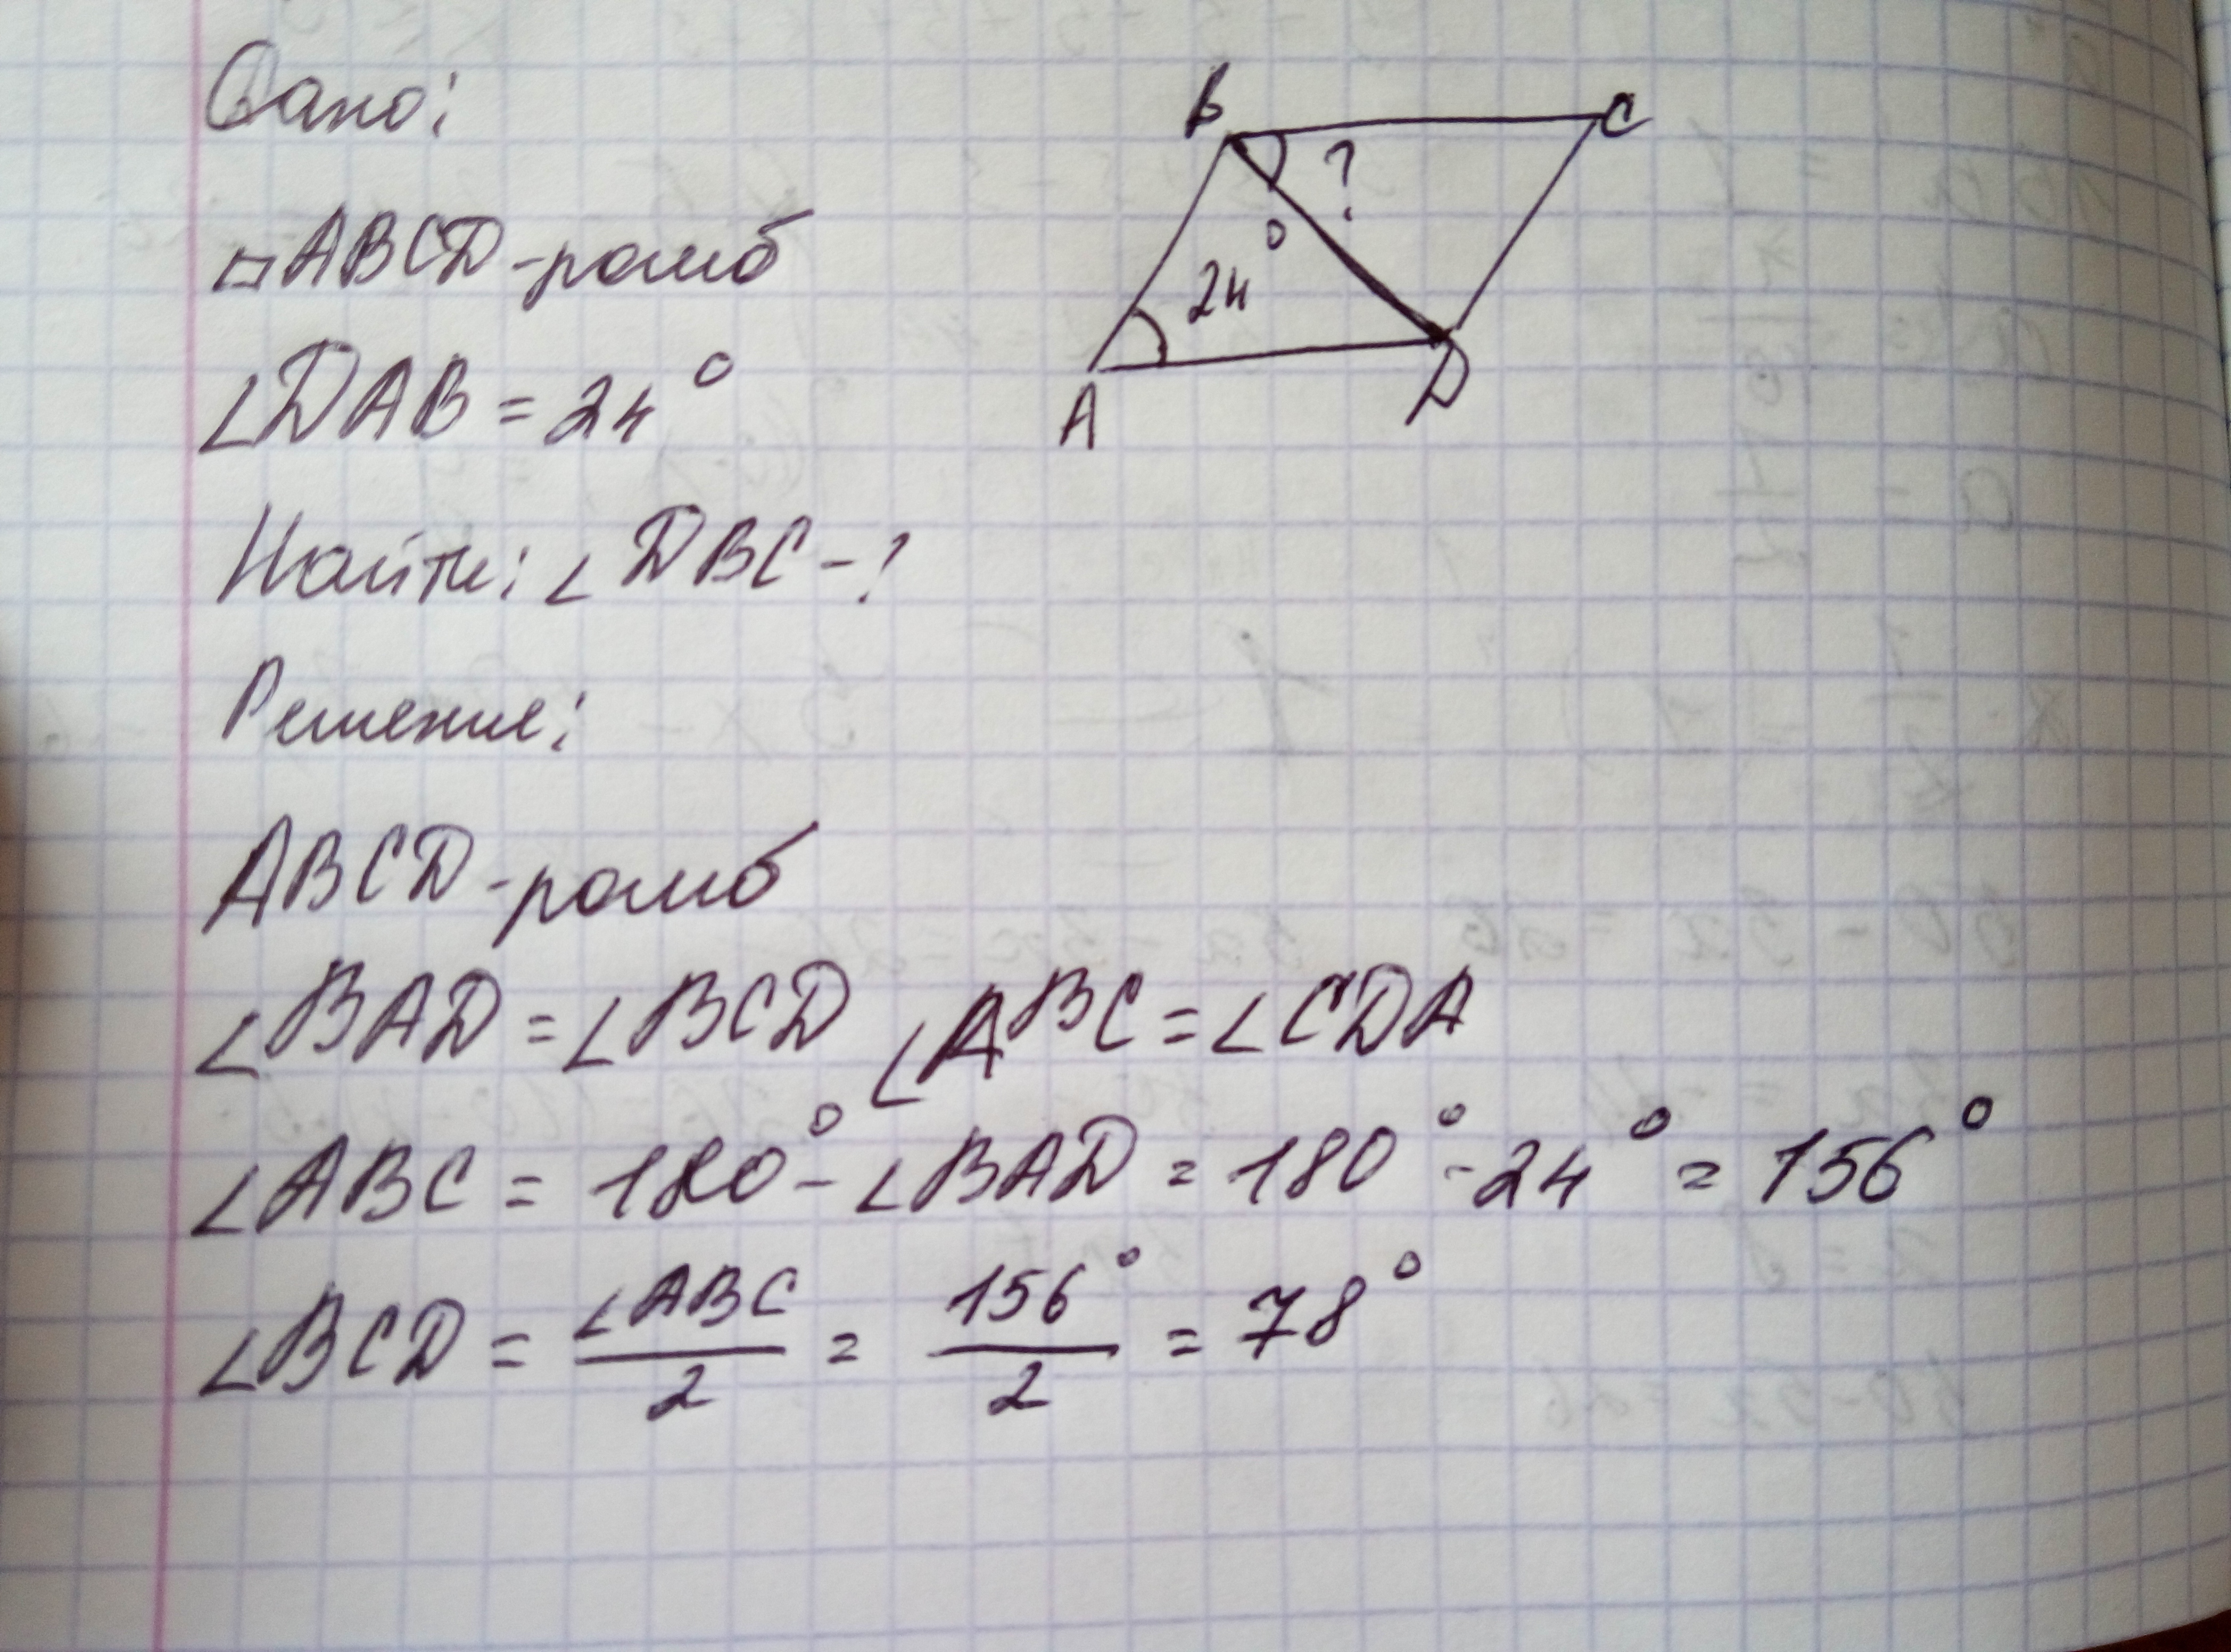 Дано:
▱ABCD-ромб
∠DAB = 24°
Найти: ∠DBC-?
Решение:
ABCD-ромб
∠BAD = ∠BCD ∠ABC = ∠CDA
∠ABC = 180° - ∠BAD = 180° - 24° = 156°
∠BCD = ∠ABC/2 = 156°/2 = 78°
B
C
?
24°
A
D